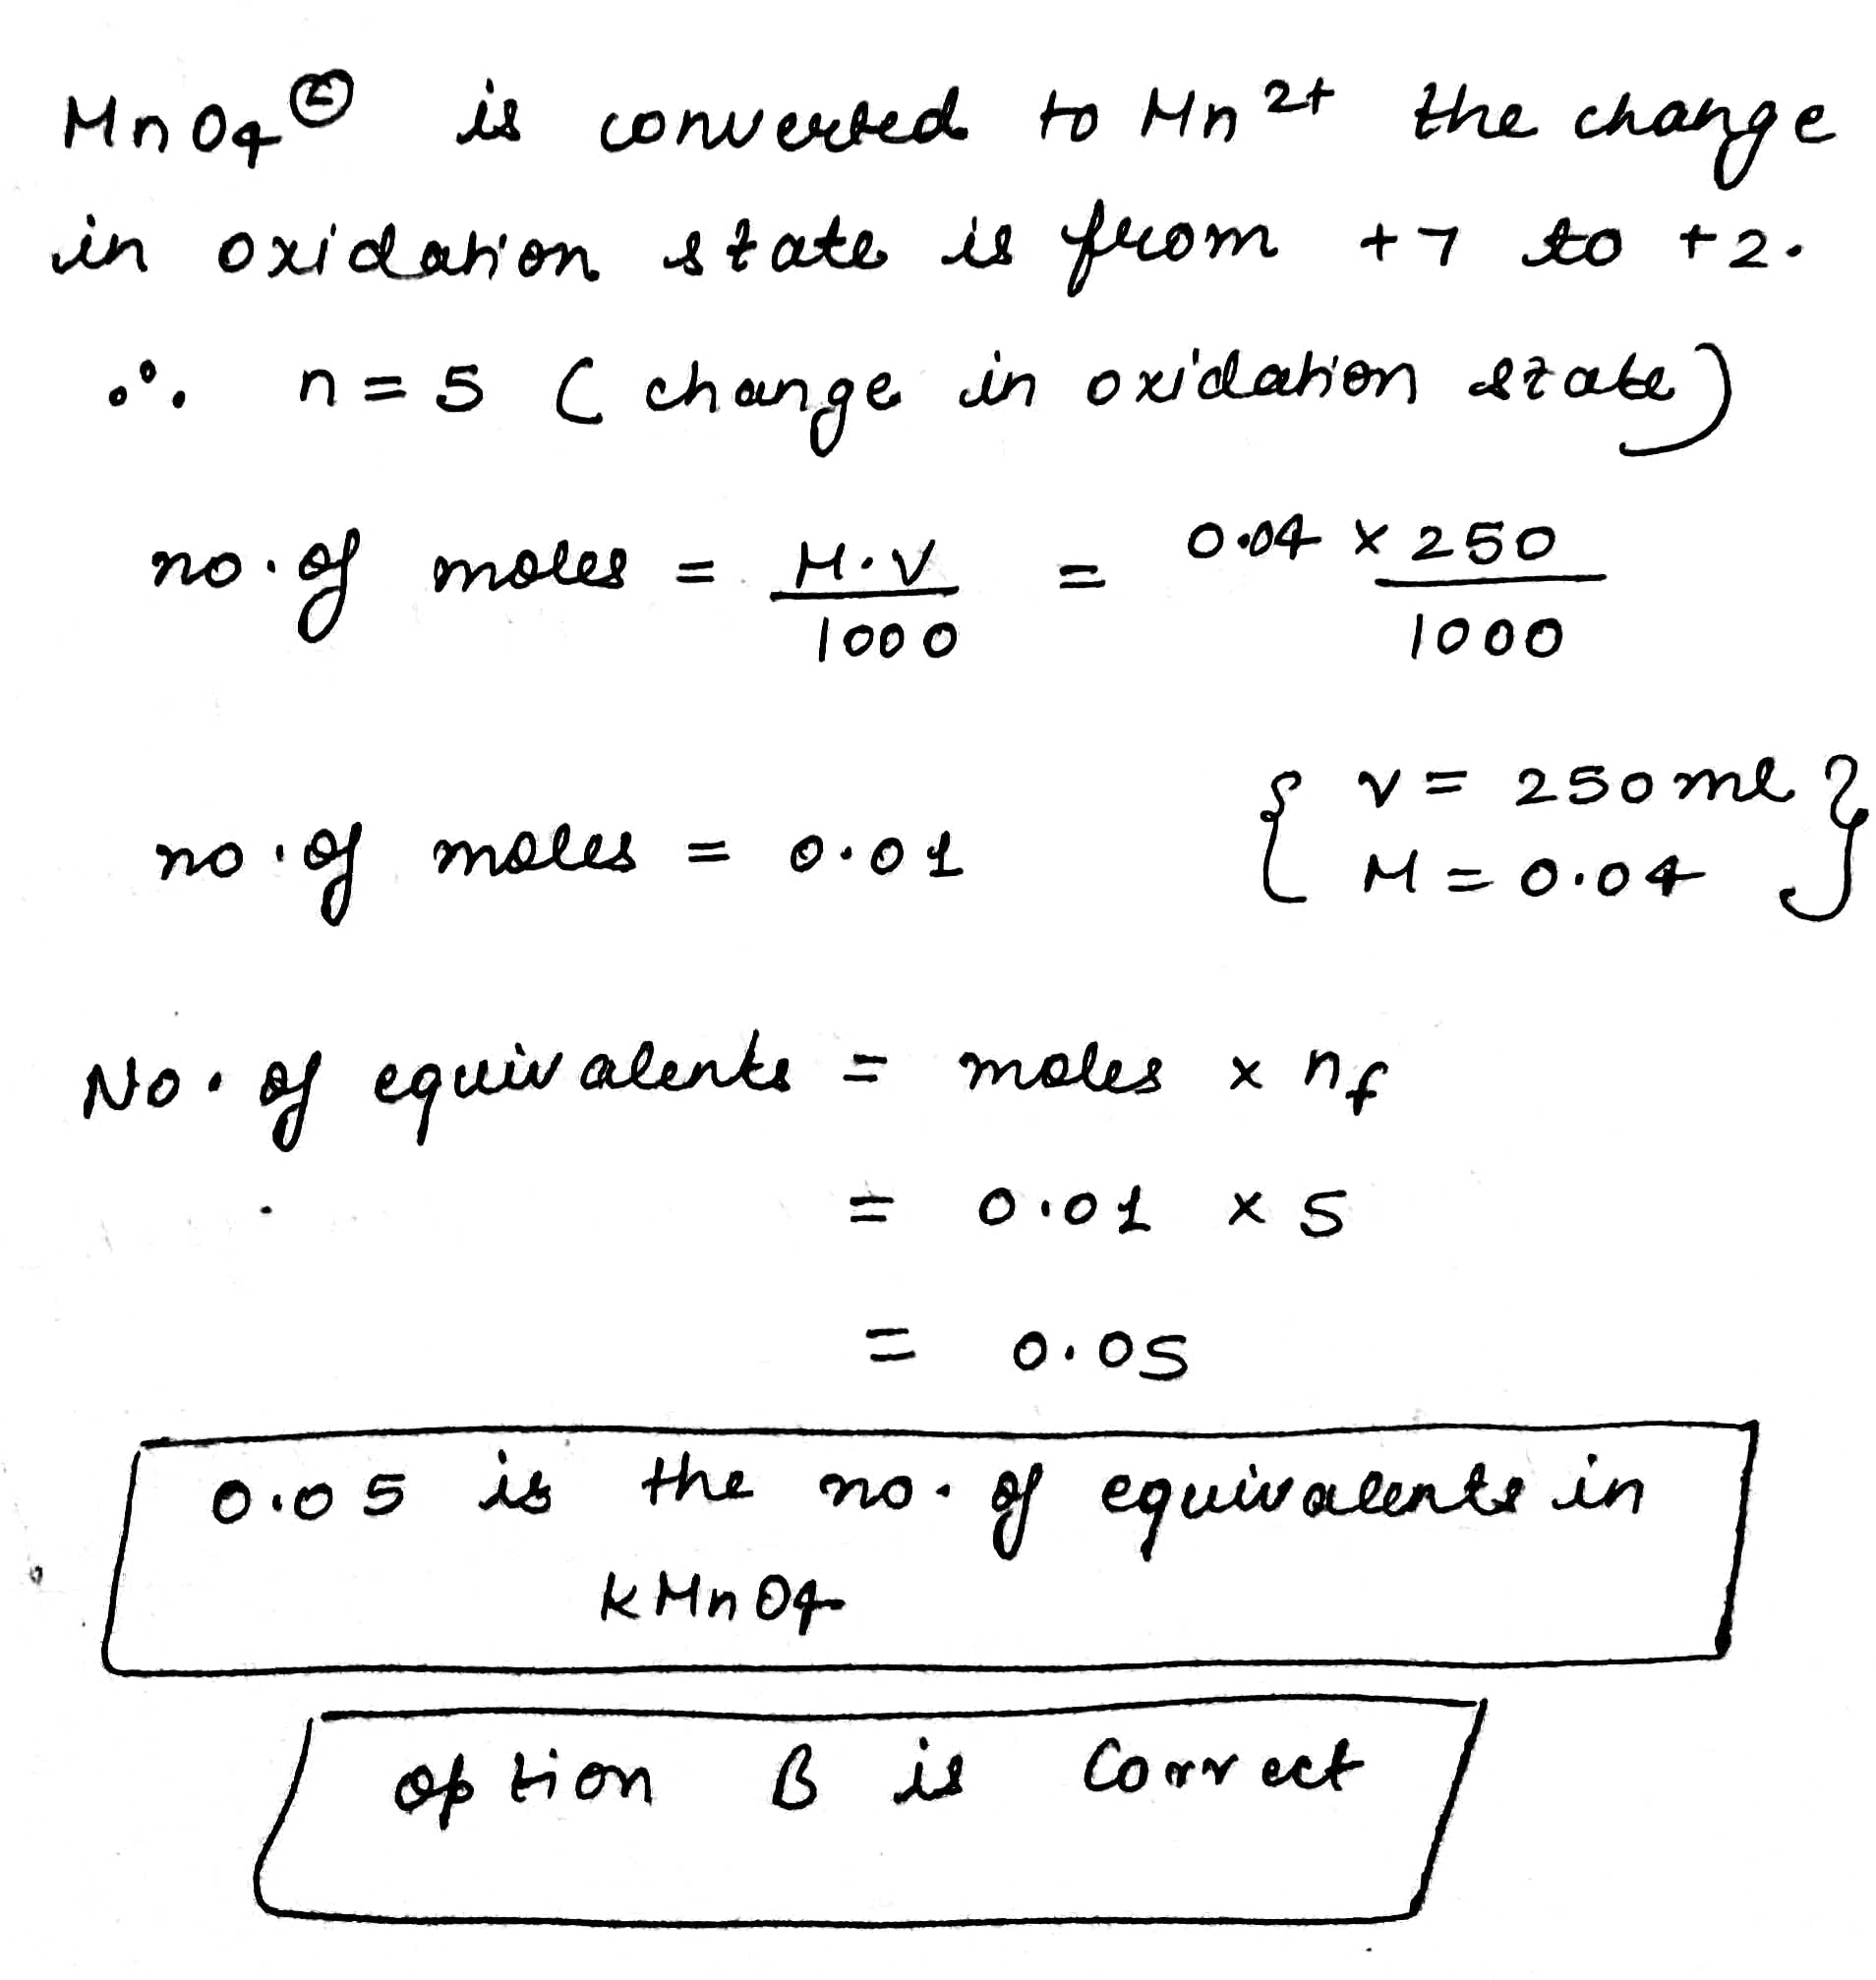 MnO4⊖ is converted to Mn2+ the change
in oxidation state is from +7 to +2.
∴ n = 5 (change in oxidation state)
no. of moles = M.V/1000 = 0.04 x 250/1000
no. of moles = 0.01 { v = 250 ml
M = 0.04 }
No. of equivalents = moles x nf
= 0.01 x 5
= 0.05
0.05 is the no. of equivalents in
KMnO4
option B is Correct